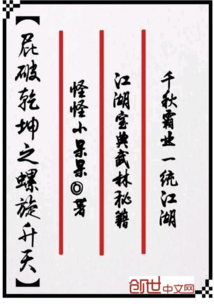 千秋霸业一统江湖
江湖宝典武林秘籍
怪怪小呆呆◎著
【屁破乾坤之螺旋升天】
创世中文网